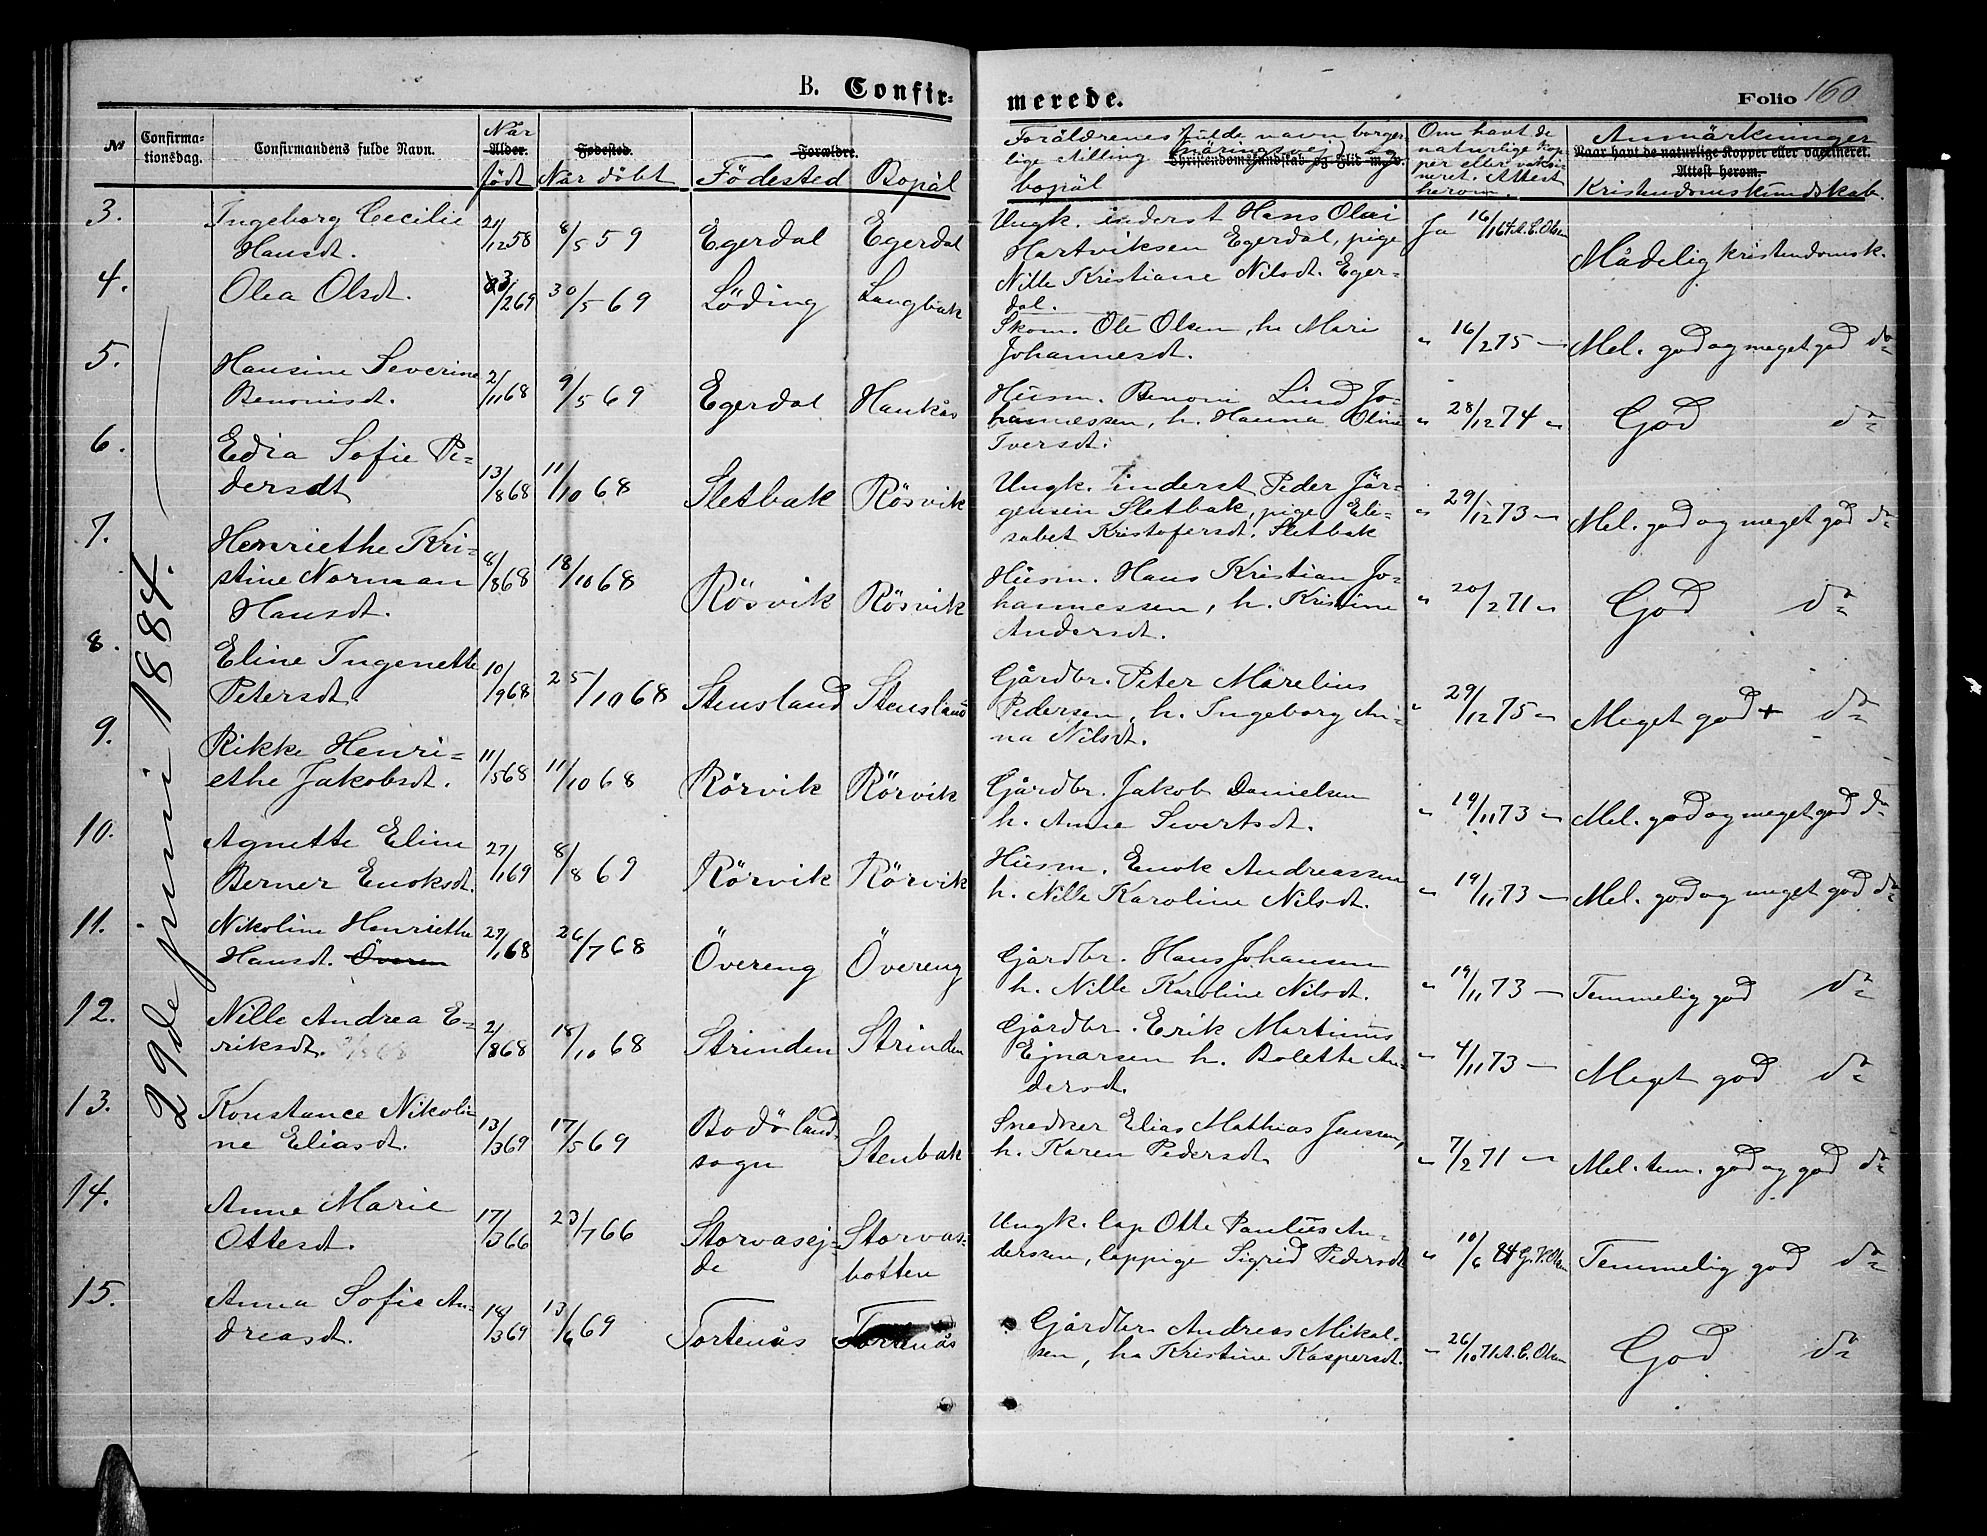 B. Confir-
merede.
Folio 160
№
Confirma-
tionsdag.
Confirmandens fulde Navn.
När
Alder.
födt
Fødested.
När döbt
Forældre.
Födested
Bopäl
Foräldrenes fulde navn, borger-
lige stilling (näringsvej) og
Christendomskundskab og Flid m. v.
bopäl
Om havt de
naturlige kop-
per eller vaksi-
neret. Attest
herom.
Anmärkninger
Naar havt de naturlige Kopper eller vaccineret.
Attest herom.
Kristendomskundskab.
29de juni 1884.
3.
Ingeborg Cecilie
Hansdt.
21/12 58
8/5 59
Egerdal
Egerdal
Ungk. inderst Hans Olai
Hartviksen Egerdal, pige
Nille Kristiane Nilsdt. Eger-
dal.
Ja 16/1 64 A. C. Olsen
Mådelig kristendomsk.
4.
Olea Olsdt.
3/2 69
30/5 69
Löding
Langbak
Skom. Ole Olsen, h. Mari
Johannesdt.
" 16/2 75 "
Mel. god og meget god do
5.
Hansine Severine
Benonisdt.
2/11 68
9/5 69
Egerdal
Haukås
Husm. Benoni Lind Jo-
hannessen, h. Hanna Oline
Iversdt.
" 28/12 74 "
God do
6.
Edia Sofie Pe-
dersdt
13/8 68
11/10 68
Sletbak
Rösvik
Ungk. inderst Peder Jör-
gensen Sletbak, pige Eli-
sabet Kristofersdt. Sletbak
" 29/12 73 "
Mel. god og meget god do
7.
Henriethe Kri-
stine Norman
Hansdt.
8/8 68
18/10 68
Rösvik
Rösvik
Husm. Hans Kristian Jo-
hannessen, h. Kristine
Andersdt.
" 20/2 71 "
God do
8.
Eline Ingenette
Petersdt.
10/9 68
25/10 68
Stensland
Stensland
Gårdbr. Peter Märelius
Pedersen, h. Ingeborg An-
na Nilsdt.
" 29/12 75 "
Meget god + do
9.
Rikke Henri-
ethe Jakobsdt.
11/5 68
11/10 68
Rörvik
Rörvik
Gårdbr. Jakob Danielsen
h. Anne Sivertsdt.
" 19/11 73 "
Mel. god og meget god do
10.
Agnette Eline
Berner Enoksdt.
27/1 69
8/8 69
Rörvik
Rörvik
Husm. Enok Andreassen
h. Nille Karoline Nilsdt.
" 19/11 73 "
Mel. god og meget god do
11.
Nikoline Henriethe
Hansdt. Överen
27/1 68
26/7 68
Övereng
Övereng
Gårdbr. Hans Johansen
h. Nille Karoline Nilsdt.
" 19/11 73 "
Temmelig god do
12.
Nille Andrea E-
riksdt.
2/8 68
18/10 68
Strinden
Strinden
Gårdbr. Erik Martinus
Ejnarsen h. Bolette An-
dersdt.
" 4/11 73 "
Meget god do
13.
Konstance Nikoli-
ne Eliasdt.
13/3 69
17/5 69
Bodö land-
sogn
Stenbak
Snedker Elias Mathias Jensen,
h. Karen Pedersdt.
" 7/2 71 "
Mel. tem. god og god do
14.
Anne Marie
Ottesdt.
17/3 66
23/7 66
Storvasej-
de
Storvas-
botten
Ungk. lap Otte Paulus An-
dersen, lappige Sigrid Pedersdt
" 10/6 84 G. V. Olsen
Temmelig god do
15.
Anna Sofie An-
dreasdt.
18/3 69
13/6 69
Tortenås
Tortenås
Gårdbr. Andreas Mikal-
sen, h. Kristine Kaspersdt.
" 26/10 71 A. C. Olsen
God do